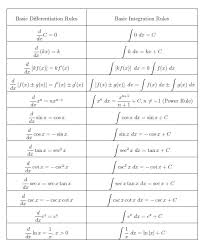 Basic Differentiation Rules | Basic Integration Rules
d/dx C = 0 | ∫ 0 dx = C
d/dx (kx) = k | ∫ k dx = kx + C
d/dx [kf(x)] = kf′(x) | ∫ [kf(x)] dx = k ∫ f(x) dx
d/dx [f(x) ± g(x)] = f′(x) ± g′(x) | ∫ [f(x) ± g(x)] dx = ∫ f(x) dx ± ∫ g(x) dx
d/dx xⁿ = nxⁿ⁻¹ | ∫ xⁿ dx = xⁿ⁺¹/(n+1) + C, n ≠ −1 (Power Rule)
d/dx sin x = cos x | ∫ cos x dx = sin x + C
d/dx cos x = − sin x | ∫ sin x dx = − cos x + C
d/dx tan x = sec² x | ∫ sec² x dx = tan x + C
d/dx cot x = − csc² x | ∫ csc² x dx = − cot x + C
d/dx sec x = sec x tan x | ∫ sec x tan x dx = sec x + C
d/dx csc x = − csc x cot x | ∫ csc x cot x dx = − csc x + C
d/dx eˣ = eˣ | ∫ eˣ dx = eˣ + C
d/dx ln x = 1/x, x > 0 | ∫ 1/x dx = ln |x| + C